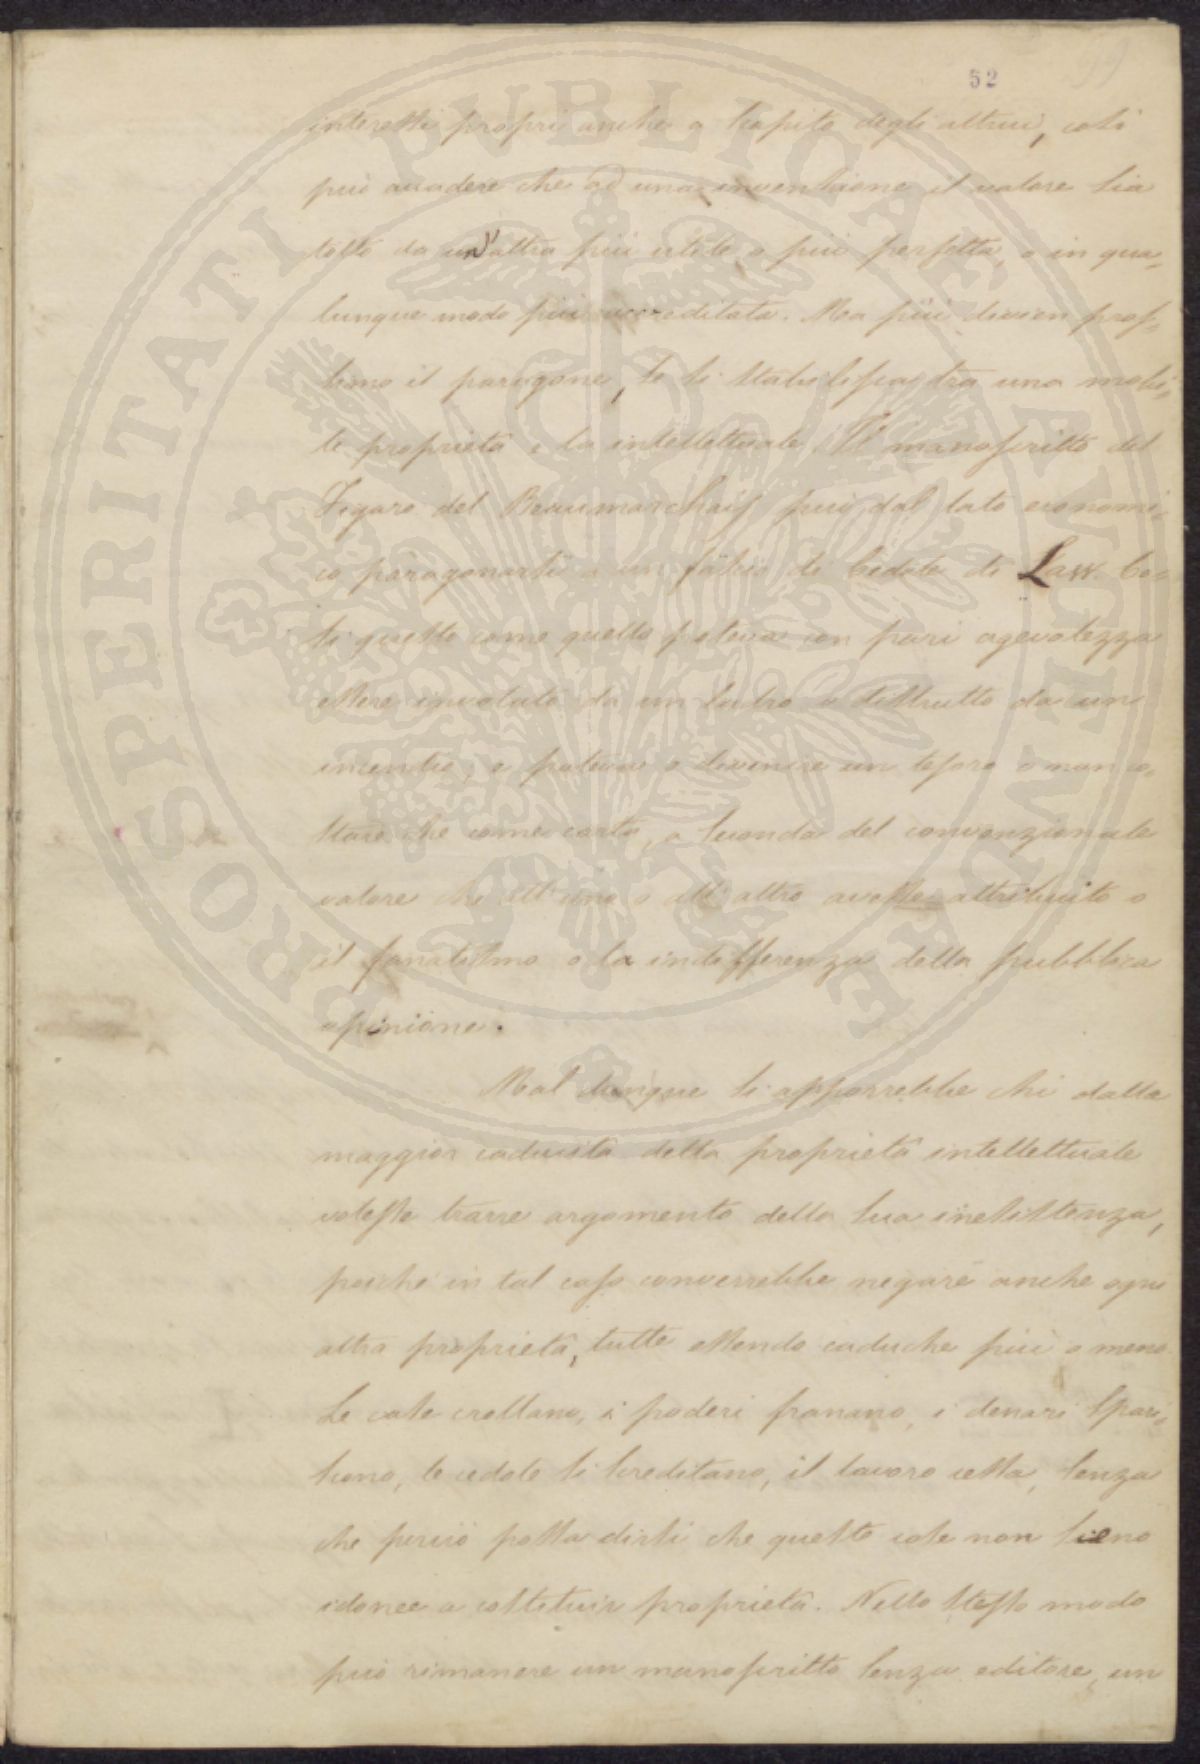 52
interessi propri anche a scapito degli altrui, così
può accadere che ad una invenzione il valore sia
tolto da un'altra più utile o più perfetta, o in qua-
lunque modo più accreditata. Ma più divien pros-
simo il paragone, se si stabilisca tra una mobi-
le proprietà e la intellettuale. Il manoscritto del
Figaro del Beaumarchais può dal lato economi-
co paragonarsi a un fascio di cedole di Law. Co-
sì questo come quello poteva con pari agevolezza
essere involato da un ladro o distrutto da un
incendio, e poteva o divenire un tesoro o non co-
stare che come carta, a seconda del convenzionale
valore che all'uno o all'altro avesse attribuito o
il fanatismo o la indifferenza della pubblica
opinione.
Mal dunque si apporrebbe chi dalla
maggior caducità della proprietà intellettuale
volesse trarre argomento della sua inesistenza,
poiché in tal caso converrebbe negare anche ogni
altra proprietà, tutte essendo caduche più o meno.
Le case crollano, i poderi franano, i denari spari-
scono, le cedole si screditano, il lavoro cessa, senza
che perciò possa dirsi che queste cose non sieno
idonee a costituir proprietà. Nello stesso modo
può rimanere un manoscritto senza editore, un
PROSPERITATI PUBLICAE AUGENDAE